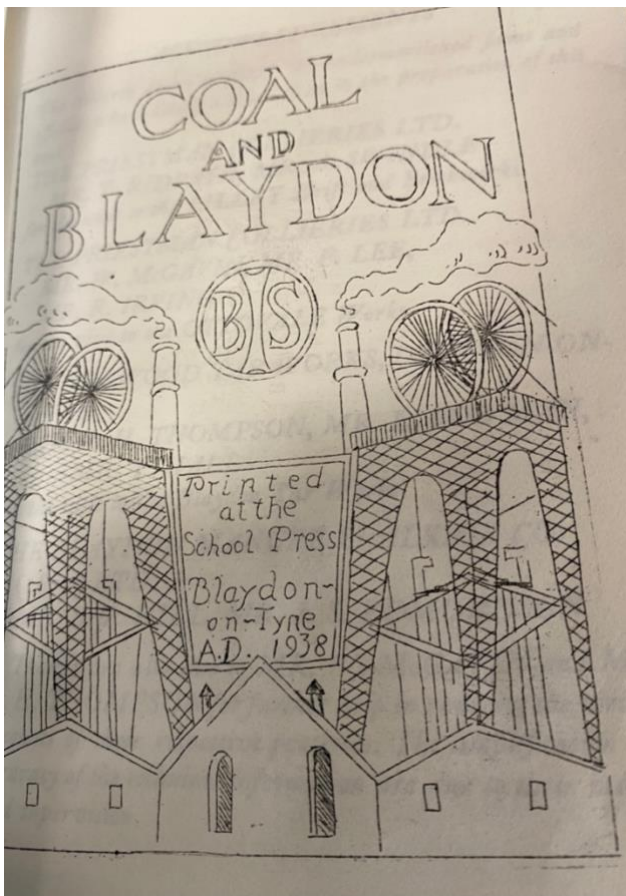 COAL
AND
BLAYDON
B S
Printed
at the
School Press
Blaydon-
on-Tyne
A.D. 1938